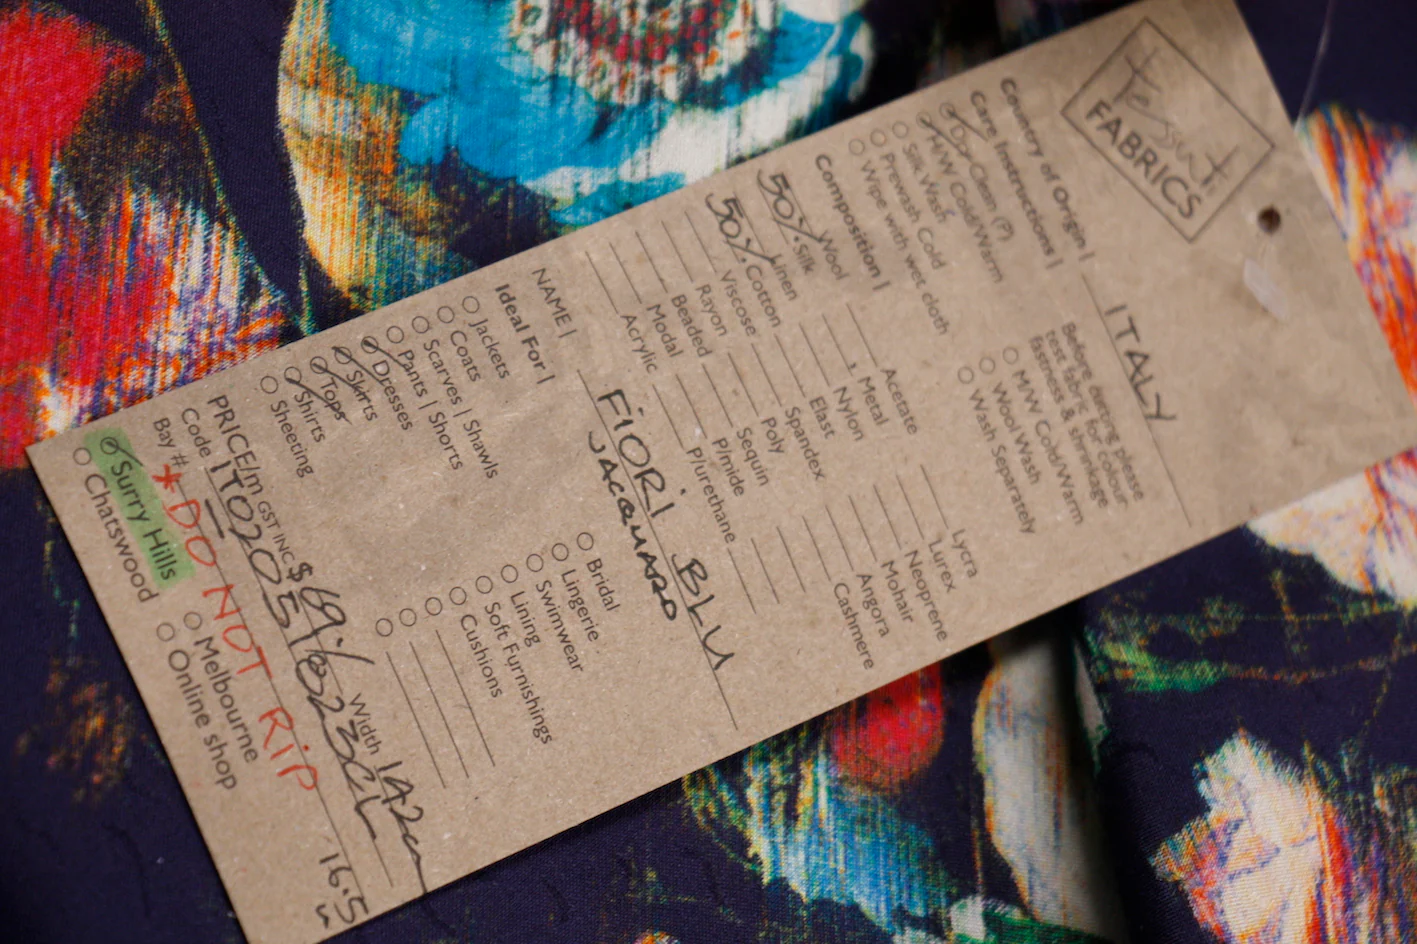 Tessuti
FABRICS
Country of Origin | ITALY
Care Instructions |
Dry Clean (P)
H/W Cold/Warm
Silk Wash
Prewash Cold
Wipe with wet cloth
Before cutting please
test fabric for colour
fastness & shrinkage
M/W Cold/Warm
Wool Wash
Wash Separately
Composition |
Wool
50% Silk
Linen
50% Cotton
Viscose
Rayon
Beaded
Modal
Acrylic
Acetate
Metal
Nylon
Elast
Spandex
Poly
Sequin
P/mide
P/urethane
Lycra
Lurex
Neoprene
Mohair
Angora
Cashmere
NAME | FiORi BLU
JACQUARD
Ideal For |
Jackets
Coats
Scarves | Shawls
Pants | Shorts
Dresses
Skirts
Tops
Shirts
Sheeting
Bridal
Lingerie
Swimwear
Lining
Soft Furnishings
Cushions
PRICE/m GST INC $69 Width 142cm
Code
Bay # * DO NOT RiP
16.5
Surry Hills
Chatswood
Melbourne
Online shop